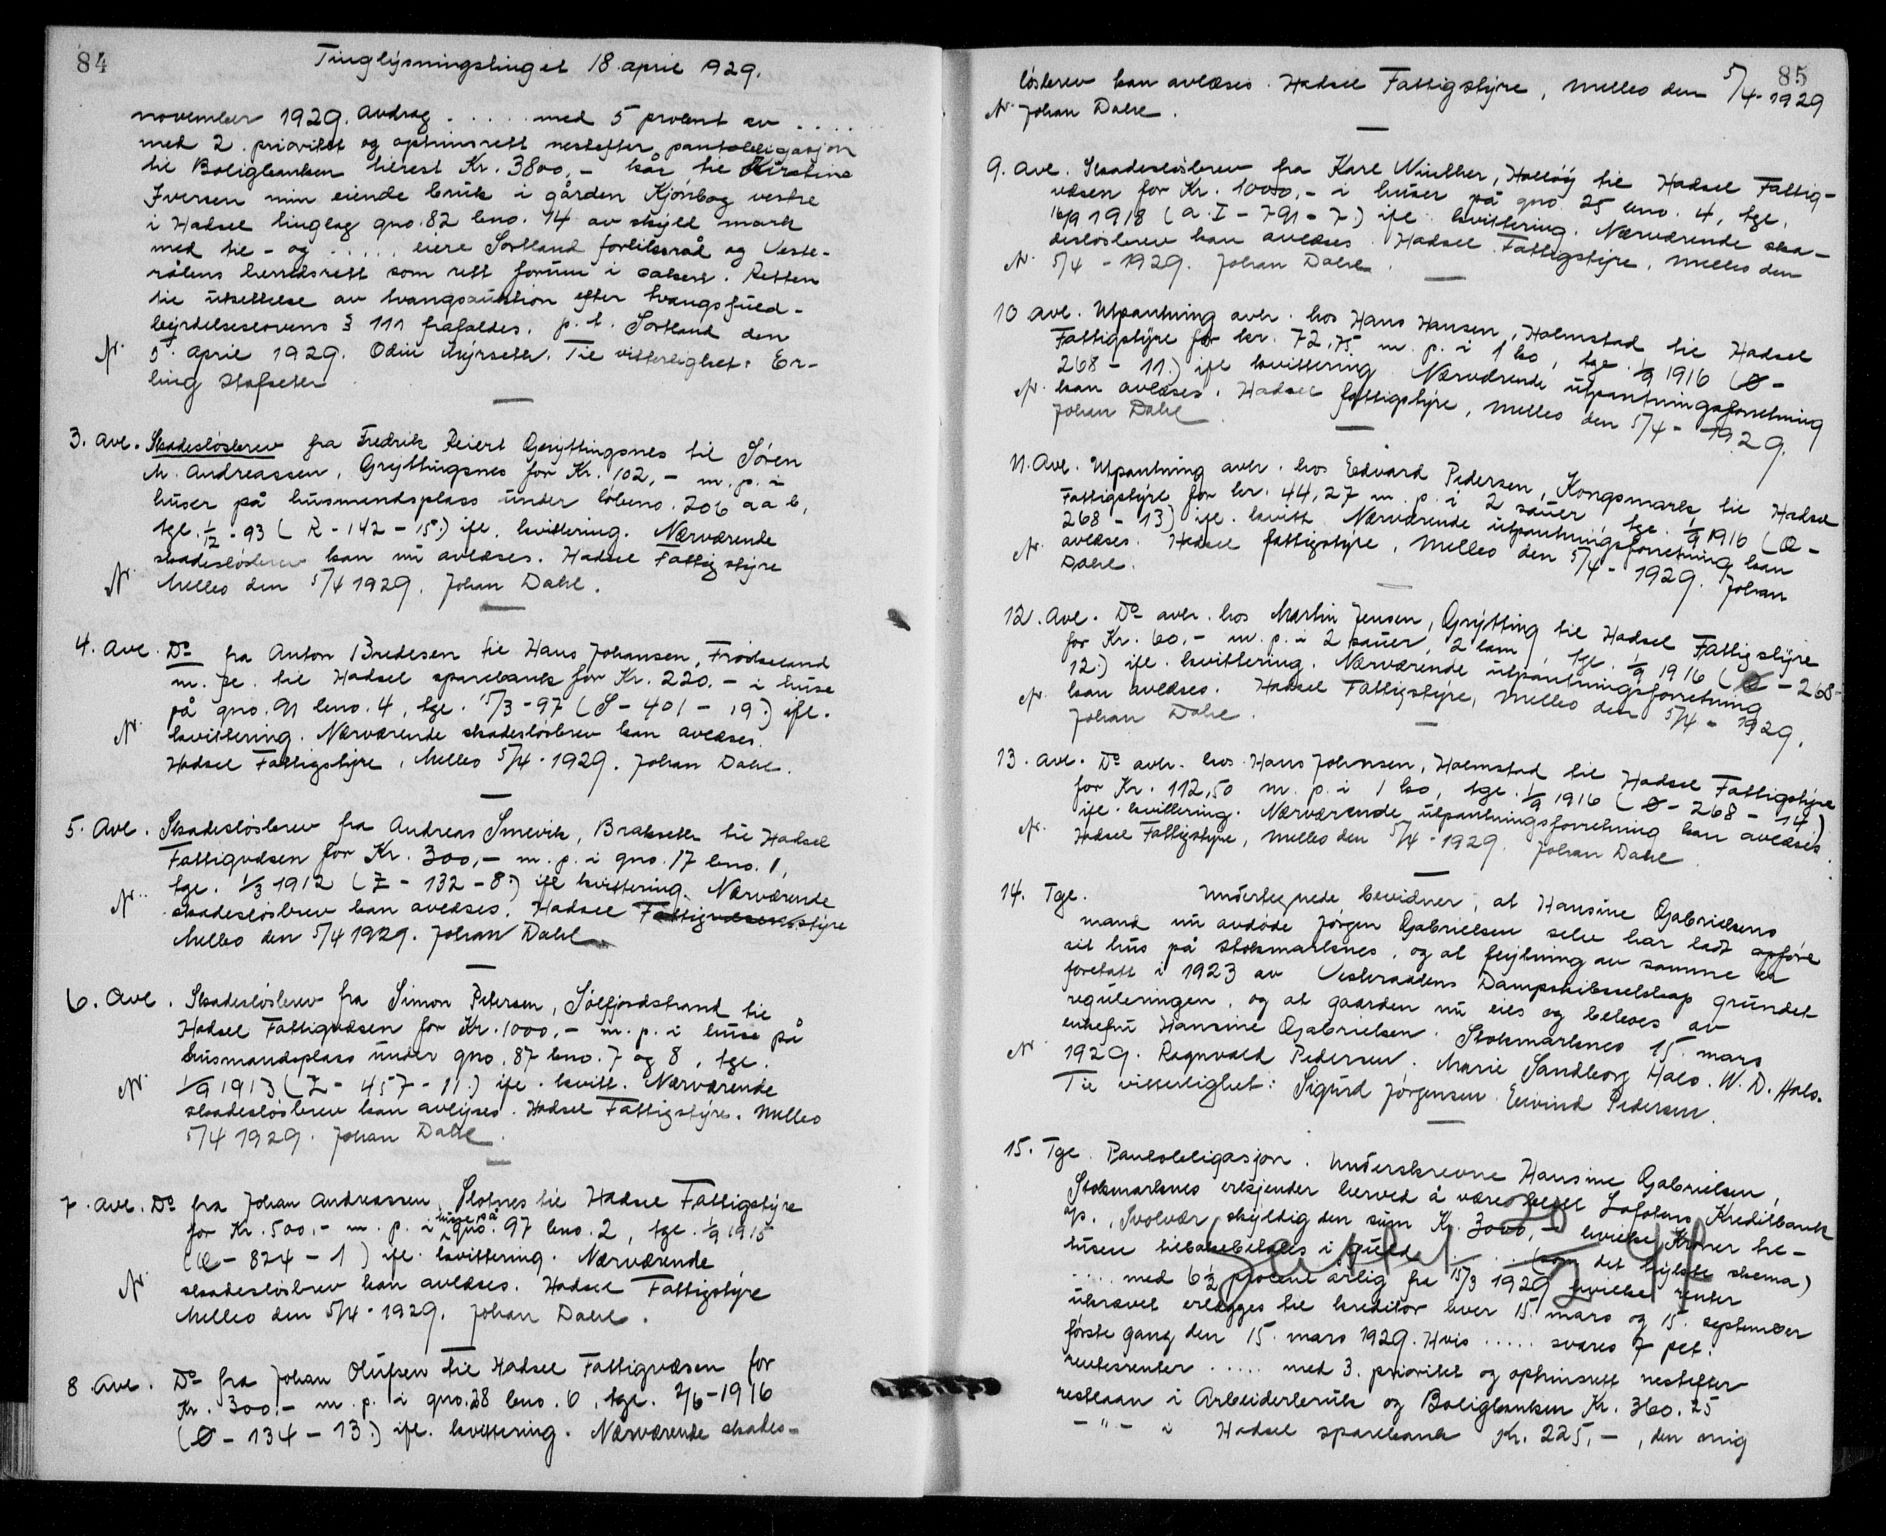 84
Tinglysningstinget 18 april 1929.
november 1929. Avdrag ..... med 5 procent av ....
med 2. prioritet og optrinsrett nestefter pantobligasjon
til Boligbanken tilrest Kr. 3800,- kår til Kirstine
Iversen min eiende bruk i gården Kjørbog vestre
i Hadsel tinglag gno. 82 bno. 14 av skyld mark
med til- og ..... eiere Sortland forliksråd og Veste-
rålens herredsrett som rett forum i søksmål. Retten
til utsettelse av tvangsauktion efter tvangsfuld-
byrdelseslovens § 111 frafaldes. p.t. Sortland den
N. 5. april 1929. Odin Myrseth. Til vitterlighet: Er-
ling Hofseter
3. Avl. Skadesløsbrev fra Fredrik Reiert Grytingsnes til Søren
M. Andreassen, Gryttingsnes for Kr. 102,- m. p. i
huser på husmandsplass under løbeno. 206 aa b,
tgl. 1/12 - 93 (R - 142 - 15.) ifl. kvittering. Nærværende
skadesløsbrev kan nu avlæses. Hadsel Fattigstyre
N. Melbo den 5/4 1929. Johan Dahl.
4. Avl. Do fra Anton Bredesen til Hans Johansen, Frøskeland
m. fl. til Hadsel sparebank for Kr. 220.- i huse
på gno. 91 bno. 4, tgl. 15/3 - 97 (S - 401 - 19.) ifl.
N. kvittering. Nærværende skadesløsbrev kan avlæses.
Hadsel Fattigstyre, Melbo 5/4 - 1929. Johan Dahl.
5. Avl. Skadesløsbrev fra Andreas Smevik, Brakseth til Hadsel
Fattigvæsen for Kr. 300,- m. p. i gno. 17 bno. 1,
tgl. 1/3 1912 (Z - 132 - 8.) ifl kvittering. Nærværende
N. skadesløsbrev kan avlæses. Hadsel Fattigvæsen styre
Melbo den 5/4 1929. Johan Dahl
6. Avl. Skadesløsbrev fra Simon Petersen, Sølfjordstrand til
Hadsel Fattigvæsen for Kr. 1000,- m. p. i huse på
husmandsplass under gno. 87 bno. 7 og 8, tgl.
N. 1/9 1913 (Z - 457 - 11.) ifl. kvitt. Nærværende
skadesløsbrev kan avlyses. Hadsel Fattigstyre. Melbo
5/4 1929. Johan Dahl.
7. Avl. Do fra Johan Andreassen, Slotnes til Hadsel Fattigstyre
for Kr. 500,- m. p. i huse på gno. 97 bno. 2, tgl. 1/9 1915
(Æ - 824 - 1) ifl. kvittering. Nærværende
N. skadesløsbrev kan avlæses. Hadsel Fattigstyre
Melbo den 5/4 - 1929. Johan Dahl.
8 Avl. Do fra Johan Olufsen til Hadsel Fattigvæsen for
Kr. 300.- m. p. i gno. 28 bno. 6, tgl. 2/6 - 1916
(Ø - 134 - 13.) ifl. kvittering. Nærværende skades-
85
løsbrev kan avlæses. Hadsel Fattigstyre, Melbo den 5/4 - 1929
N. Johan Dahl.
9. Avl. Skadesløsbrev fra Karl Winther, Holløy til Hadsel Fattig-
væsen for Kr. 1000,- i huser på gno. 25 bno. 4, tgl.
16/9 1918 (a. I - 791 - 7) ifl. kvittering. Nærværende ska-
desløsbrev kan avlæses. Hadsel Fattigstyre, Melbo den
N. 5/4 - 1929. Johan Dahl.
10 Avl. Utpantning avh. hos Hans Hansen, Holmstad til Hadsel
Fattigstyre for kr. 72,75 m. p. i 1 ko, tgl. 1/9 1916 (Ø -
268 - 11.) ifl kvittering. Nærværende utpantningsforretning
N. kan avlæses. Hadsel fattigstyre, Melbo den 5/4 - 1929.
Johan Dahl
11. Avl. Utpantning avh. hos Edvard Pedersen, Kongsmark, til Hadsel
Fattigstyre for kr. 44,27 m. p. i 2 sauer, tgl. 1/9 1916 (Æ -
268 - 13) ifl. kvitt. Nærværende utpantningsforretning kan
N. avlæses. Hadsel fattigstyre, Melbo den 5/4 - 1929. Johan
Dahl.
12. Avl. Do avh. hos Martin Jensen, Grytting til Hadsel Fattigstyre
for Kr. 60,- m. p. i 2 sauer, 2 lam, tgl. 1/9 1916 (Ø - 268-
12.) ifl. kvittering. Nærværende utpantningsforretning
N. kan avlæses. Hadsel Fattigstyre, Melbo den 5/4 - 1929.
Johan Dahl.
13. Avl. Do avh. hos Hans Johnsen, Holmstad til Hadsel Fattigstyre
for Kr. 112,50 m. p. i 1 ko, tgl. 1/9 1916 (Ø - 268 - 14)
ifl. kvittering. Nærværende utpantningsforretning kan avlæses.
N. Hadsel Fattigstyre, Melbo den 5/4 - 1929. Johan Dahl.
14. Tgl. Undertegnede bevidner, at Hansine Gabrielsens
mand nu avdøde Jørgen Gabrielsen selv har ladt opføre
sit hus på Stokmarknes, og at flytning av samme er
foretatt i 1923 av Vesteraalens Dampskibsselskap grundet
reguleringen, og at gaarden nu eies og beboes av
enkefru Hansine Gabrielsen. Stokmarknes 15. mars
N. 1929. Ragnvald Pedersen. Marie Sandborg Hals. W. D. Hals.
Til vitterlighet: Sigurd Jørgensen Eivind Pedersen.
15. Tgl. Pantobligasjon. Underskrevne Hansine Gabrielsen,
Stokmarknes erkjender herved å være blitt Lofotens Kreditbank
A/s., Svolvær skyldig den sum Kr. 3000,- hvilke Kroner tre-
tusen tilbakebetales i guld ..... (som det trykte skema)
.... med 6 1/2 procent årlig fra 15/3 1929 hvilke renter
ukrævet erlægges til kreditor hver 15. mars og 15. september
første gang den 15. mars 1929. Hvis ..... svares 7 pct.
rentesrenter ..... med 3. prioritet og optrinsrett nestefter
restlaan i Arbeiderbruk og Boligbanken Kr. 360.25
- " - i Hadsel sparebank Kr. 225,-, den mig